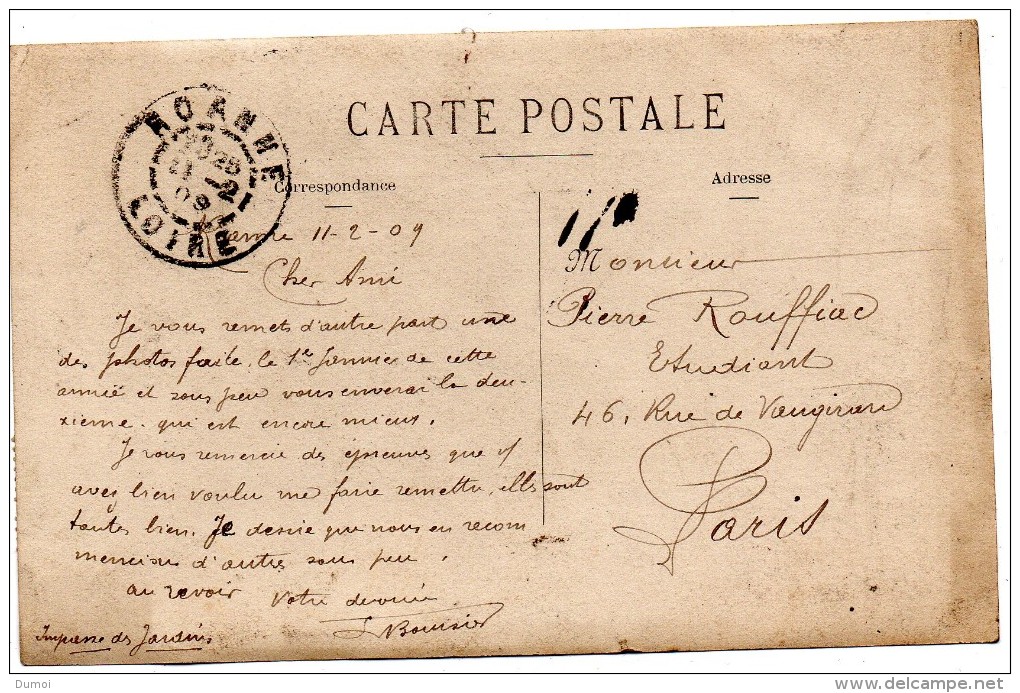 CARTE POSTALE
Correspondance
Adresse
ROANNE
LOIRE
Roanne 11-2-09
Cher Ami
Je vous remets d'autre part une
des photos faite le 1er Janvier de cette
année et sous peu vous enverai la deu-
xieme qui est encore mieux.
Je vous remercie des épreuves que v/
avez bien voulu me faire remettre, elles sont
toutes bien. Je desire que nous en recom
mencions d'autres sous peu.
au revoir
Votre dévoué
Boursier
Impasse des Jardins
Monsieur
Pierre Rouffiac
Etudiant
46, Rue de Vaugirard
Paris
Dumoi
www.delcampe.net